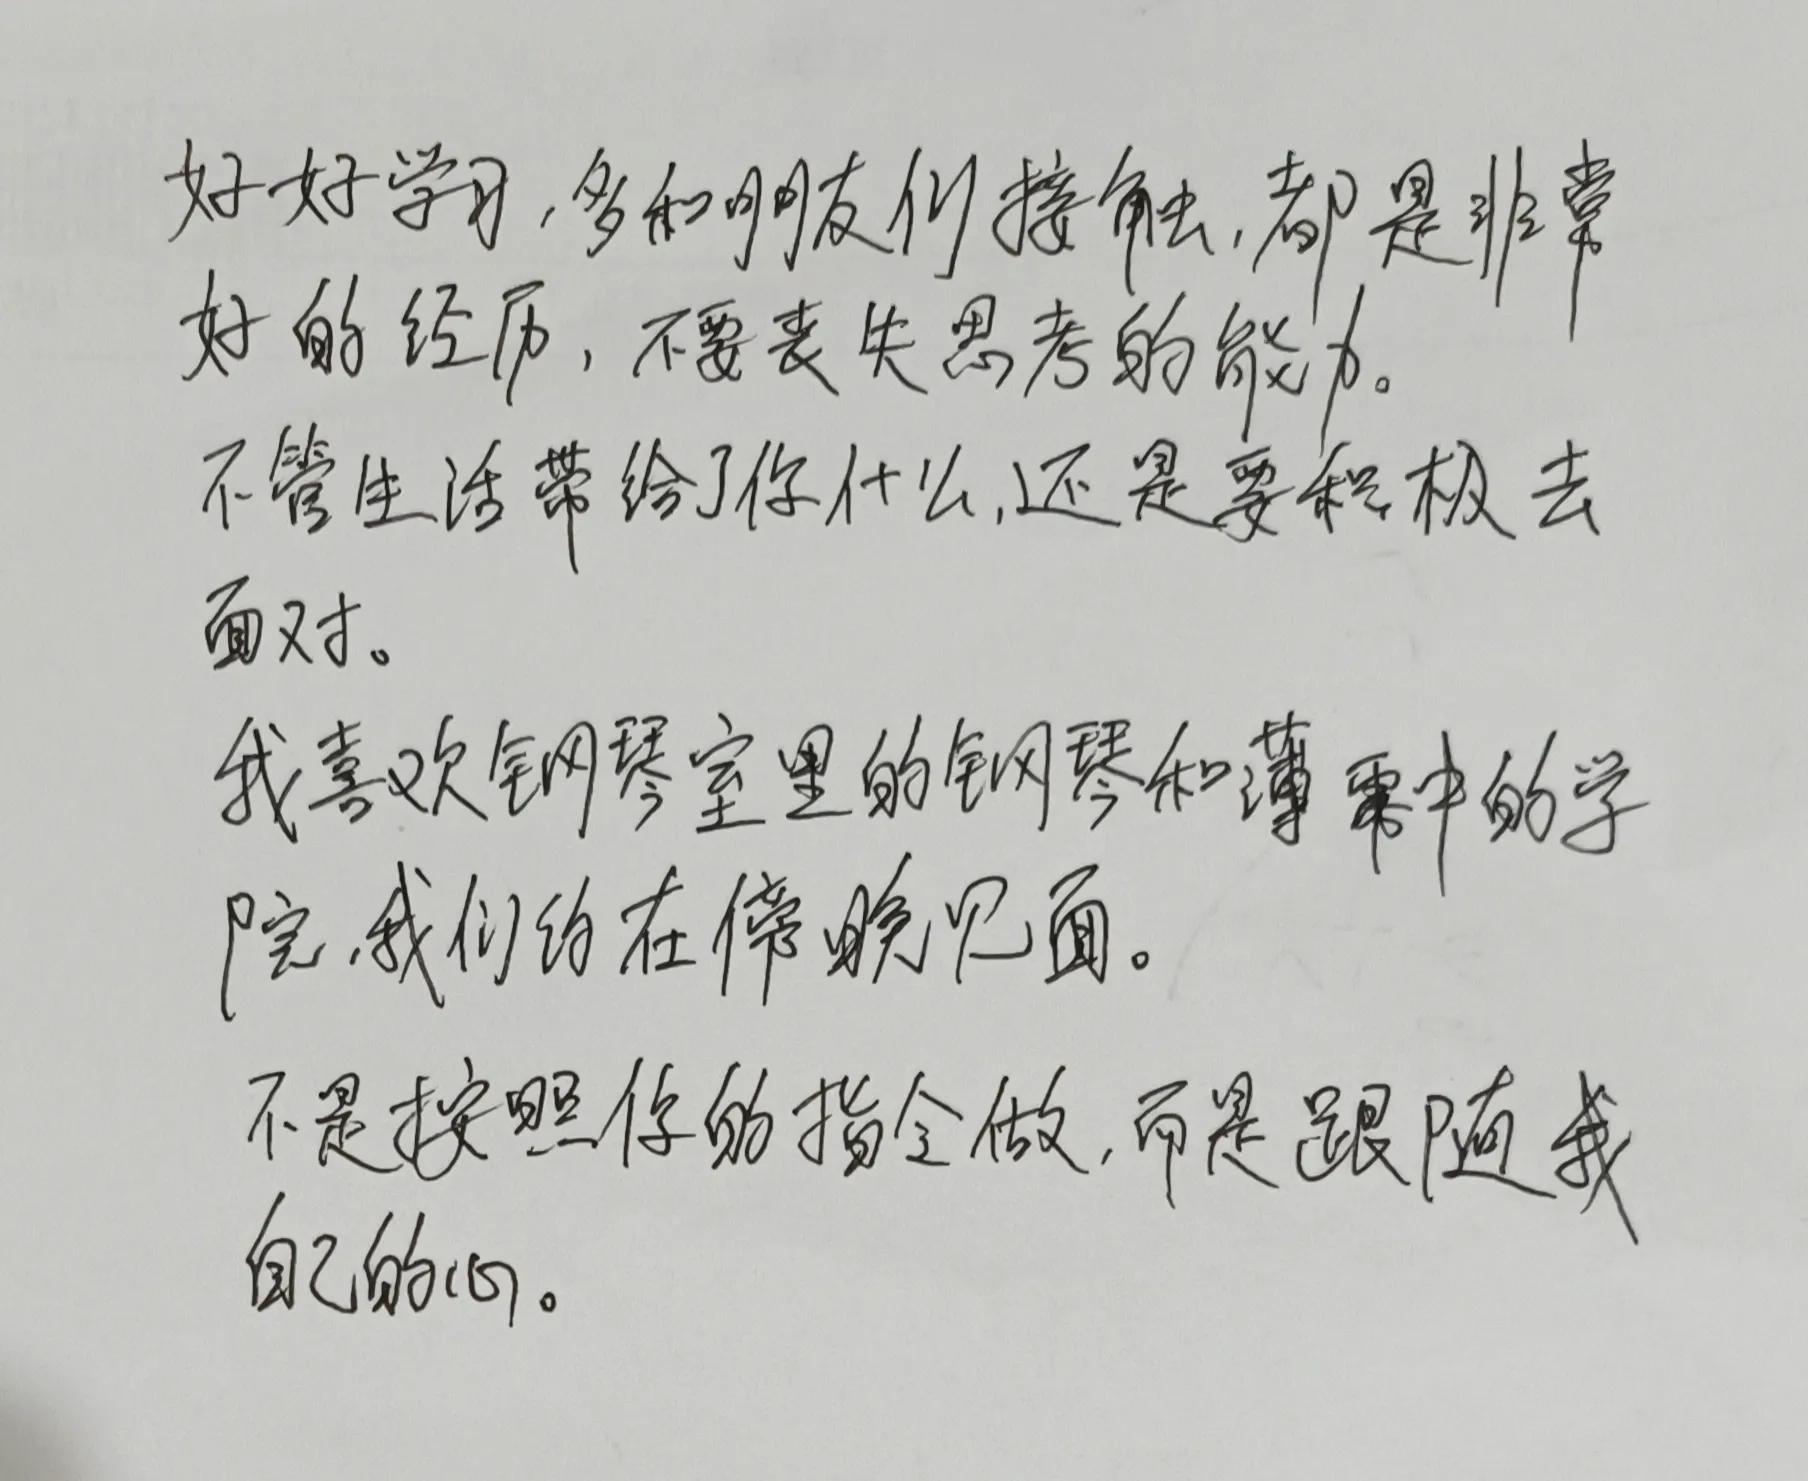 好好学习,多和朋友们接触,都是非常
好的经历,不要丧失思考的能力。
不管生活带给了你什么,还是要积极去
面对。
我喜欢钢琴室里的钢琴和薄雾中的学
院,我们约在傍晚见面。
不是按照你的指令做,而是跟随我
自己的心。